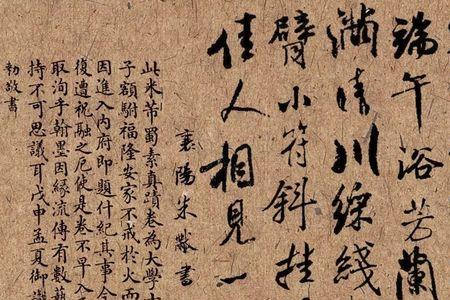 端午浴芳蘭
滿晴川綵綫
臂小符斜挂
佳人相見一
襄陽米黻書
此米芾蜀素真蹟卷為大學士
子額駙福隆安家不戒於火而
因進入內府即題什紀其事今
復遭祝融之厄使是卷不早入
取洵乎翰墨因緣流傳有數
持不可思議耳戊申孟夏御識
勅敬書